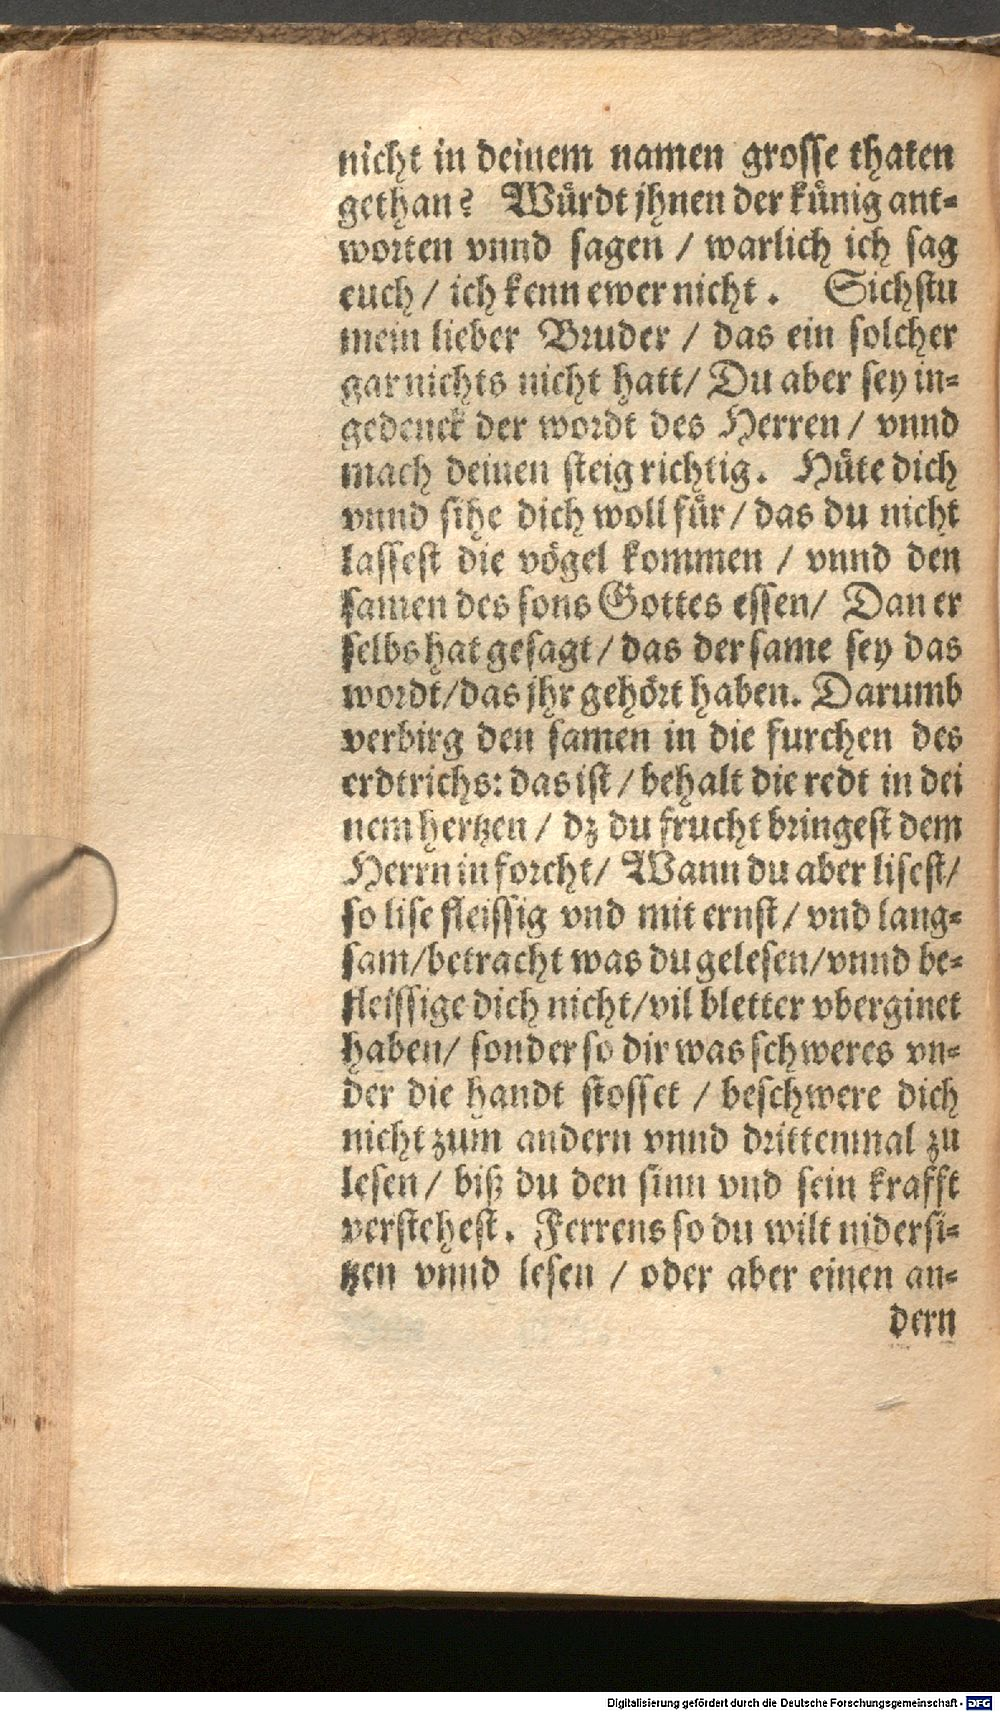 nicht in deinem namen grosse thaten
gethan? Wuͤrdt jhnen der kuͤnig ant⸗
worten vnnd sagen / warlich ich sag
euch / ich kenn ewer nicht. Sichstu
mein lieber Bruder / das ein solcher
gar nichts nicht hatt/ Du aber sey in⸗
gedenck der wordt des Herren / vnnd
mach deinen steig richtig. Huͤte dich
vnnd sihe dich woll fuͤr / das du nicht
lassest die voͤgel kommen / vnnd den
samen des sons Gottes essen/ Dan er
selbs hat gesagt / das der same sey das
wordt/das jhr gehoͤrt haben. Darumb
verbirg den samen in die furchen des
erdtrichs: das ist / behalt die redt in dei
nem hertzen / dz du frucht bringest dem
Herrn in forcht/ Wann du aber lisest/
so lise fleissig vnd mit ernst / vnd lang⸗
sam/betracht was du gelesen/vnnd be⸗
fleissige dich nicht/vil bletter vberginet
haben/ sonder so dir was schweres vn⸗
der die handt stosset / beschwere dich
nicht zum andern vnnd drittenmal zu
lesen / biß du den sinn vnd sein krafft
verstehest. Ferrens so du wilt nidersi⸗
tzen vnnd lesen / oder aber einen an⸗
dern
Digitalisierung gefördert durch die Deutsche Forschungsgemeinschaft - DFG